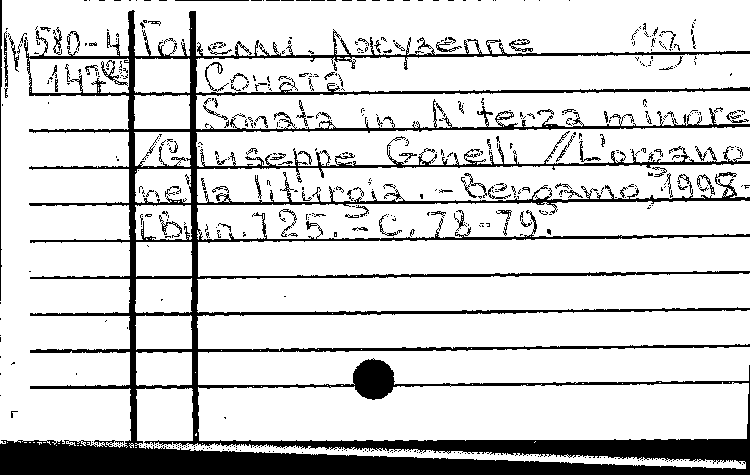 М 580-4 Гонелли, Джузеппе
147 Соната
Sonata in „A" terza minore
/Giuseppe Gonelli //L'organo
nella liturgia. - Bergamo, 1998-
[Вып.] 25. - С. 78-79.